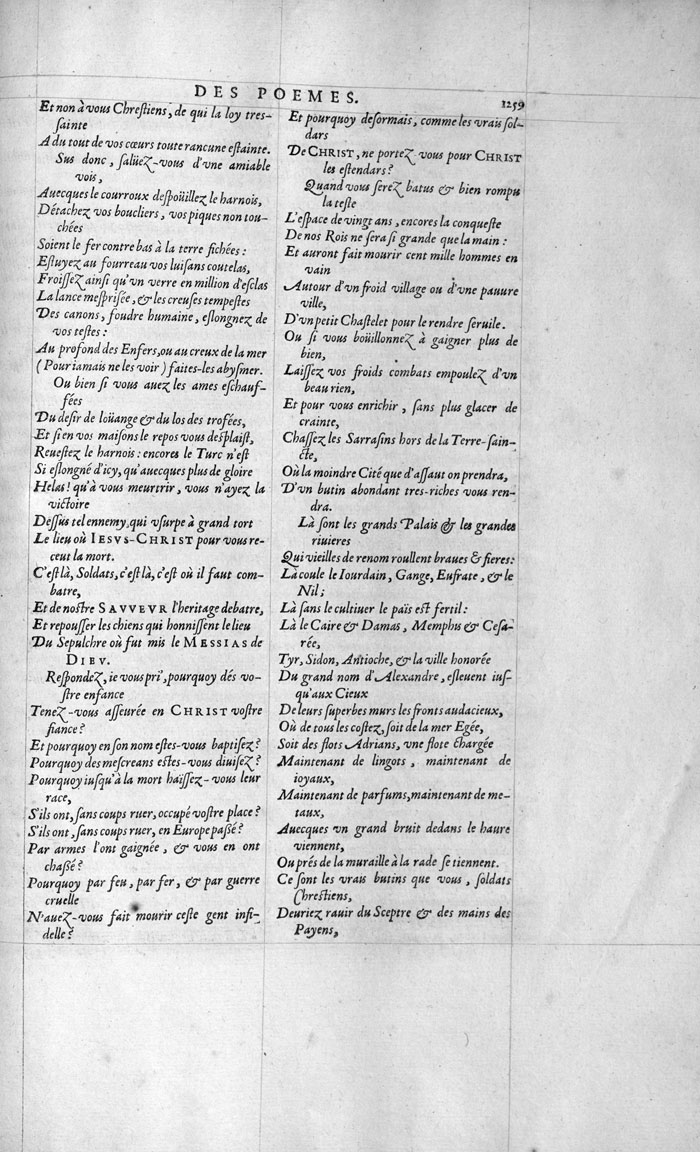 DES POEMES.
1259
Et non à vous Chrestiens, de qui la loy tres-
sainte
A du tout de vos cœurs toute rancune estainte.
Sus donc, salüez-vous d'vne amiable
vois,
Auecques le courroux despoüillez le harnois,
Détachez vos boucliers, vos piques non tou-
chées
Soient le fer contre bas à la terre fichées:
Estuyez au fourreau vos luisans coutelas,
Froissez ainsi qu'un verre en million d'esclas
La lance mesprisée, & les creuses tempestes
Des canons, foudre humaine, eslongnez de
vos testes:
Au profond des Enfers, ou au creux de la mer
(Pour iamais ne les voir) faites-les abysmer.
Ou bien si vous auez les ames eschauf-
fées
Du desir de loüange & du los des trofées,
Et si en vos maisons le repos vous desplaist,
Reuestez le harnois: encores le Turc n'est
Si eslongné d'icy, qu'auecques plus de gloire
Helas! qu'à vous meurtrir, vous n'ayez la
victoire
Dessus tel ennemy, qui vsurpe à grand tort
Le lieu où IESVS-CHRIST pour vous re-
ceut la mort.
C'est là, Soldats, c'est là, c'est où il faut com-
batre,
Et de nostre SAVVEVR l'heritage debatre,
Et repousser les chiens qui honnissent le lieu
Du Sepulchre où fut mis le MESSIAS de
DIEV.
Respondez, ie vous pri', pourquoy dés vo-
stre enfance
Tenez-vous asseurée en CHRIST vostre
fiance?
Et pourquoy en son nom estes-vous baptisez?
Pourquoy des mescreans estes-vous diuisez?
Pourquoy iusqu'à la mort haïssez-vous leur
race,
S'ils ont, sans coups ruer, occupé vostre place?
S'ils ont, sans coups ruer, en Europe passé?
Par armes l'ont gaignée, & vous en ont
chassé?
Pourquoy par feu, par fer, & par guerre
cruelle
N'auez-vous fait mourir ceste gent infi-
delle?
Et pourquoy desormais, comme les vrais sol-
dars
De CHRIST, ne portez vous pour CHRIST
les estendars?
Quand vous serez batus & bien rompu
la teste
L'espace de vingt ans, encores la conqueste
De nos Rois ne sera si grande que la main:
Et auront fait mourir cent mille hommes en
vain
Autour d'vn froid village ou d'vne pauure
ville,
D'vn petit Chastelet pour le rendre seruile.
Ou si vous boüillonnez à gaigner plus de
bien,
Laissez vos froids combats empoulez d'vn
beau rien,
Et pour vous enrichir, sans plus glacer de
crainte,
Chassez les Sarrasins hors de la Terre-sain-
cte,
Où la moindre Cité que d'assaut on prendra,
D'vn butin abondant tres-riches vous ren-
dra.
Là sont les grands Palais & les grandes
riuieres
Qui vieilles de renom roullent braues & fieres:
Là coule le Iourdain, Gange, Eufrate, & le
Nil;
Là sans le cultiuer le païs est fertil:
Là le Caire & Damas, Memphis & Cesa-
rée,
Tyr, Sidon, Antioche, & la ville honorée
Du grand nom d'Alexandre, esleuent ius-
qu'aux Cieux
De leurs superbes murs les fronts audacieux,
Où de tous les costez, soit de la mer Egée,
Soit des flots Adrians, vne flote chargée
Maintenant de lingots, maintenant de
ioyaux,
Maintenant de parfums, maintenant de me-
taux,
Auecques vn grand bruit dedans le haure
viennent,
Ou prés de la muraille à la rade se tiennent.
Ce sont les vrais butins que vous, soldats
Chrestiens,
Deuriez rauir du Sceptre & des mains des
Payens,